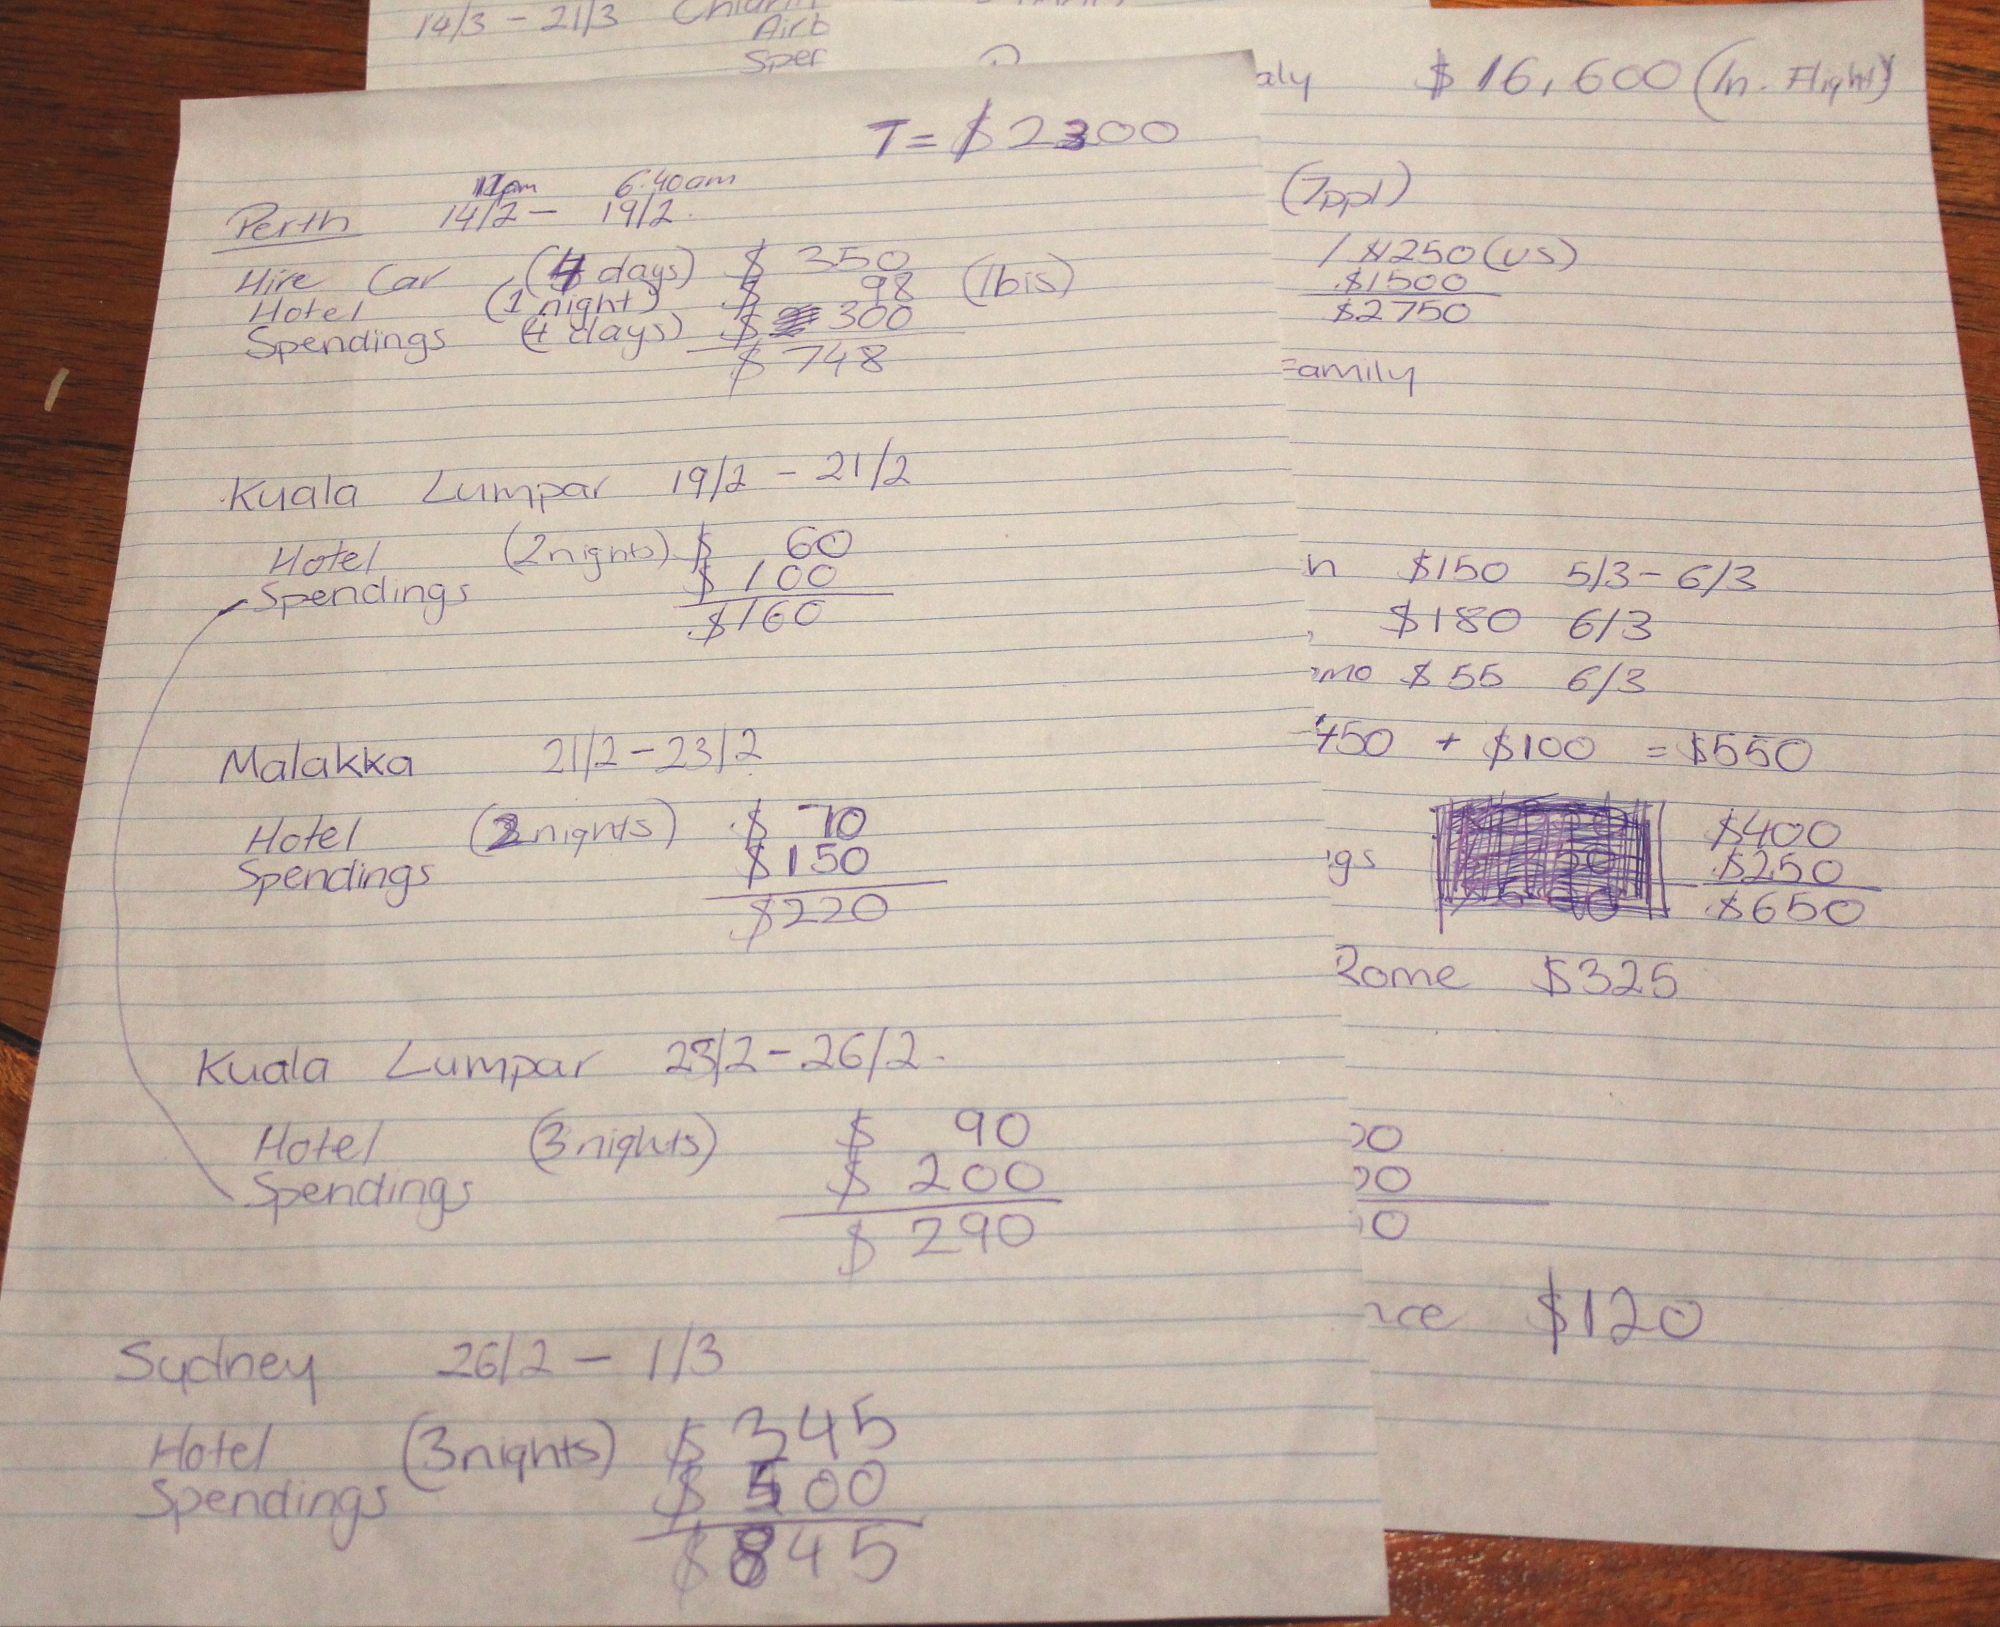 14/3 - 21/3
Airb
Sper
T= $2300
11pm 6.40am
Perth 14/2 - 19/2.
Hire Car (4 days) $ 350
Hotel (1 night) $ 98 (Ibis)
Spendings (4 days) $ 300
$ 748
Kuala Lumpar 19/2 - 21/2
Hotel (2 nights) $ 60
Spendings $ 100
$160
Malakka 21/2 - 23/2
Hotel (2 nights) $ 70
Spendings $150
$220
Kuala Lumpar 23/2 - 26/2.
Hotel (3 nights) $ 90
Spendings $ 200
$ 290
Sydney 26/2 - 1/3
Hotel (3 nights) $ 345
Spendings $ 500
$ 845
aly $16,600 (In. Flight)
(7ppl)
/ $1250 (US)
$1500
$2750
Family
n $150 5/3 - 6/3
$180 6/3
mo $55 6/3
450 + $100 = $550
$400
gs $250
$650
Rome $325
00
00
0
nce $120